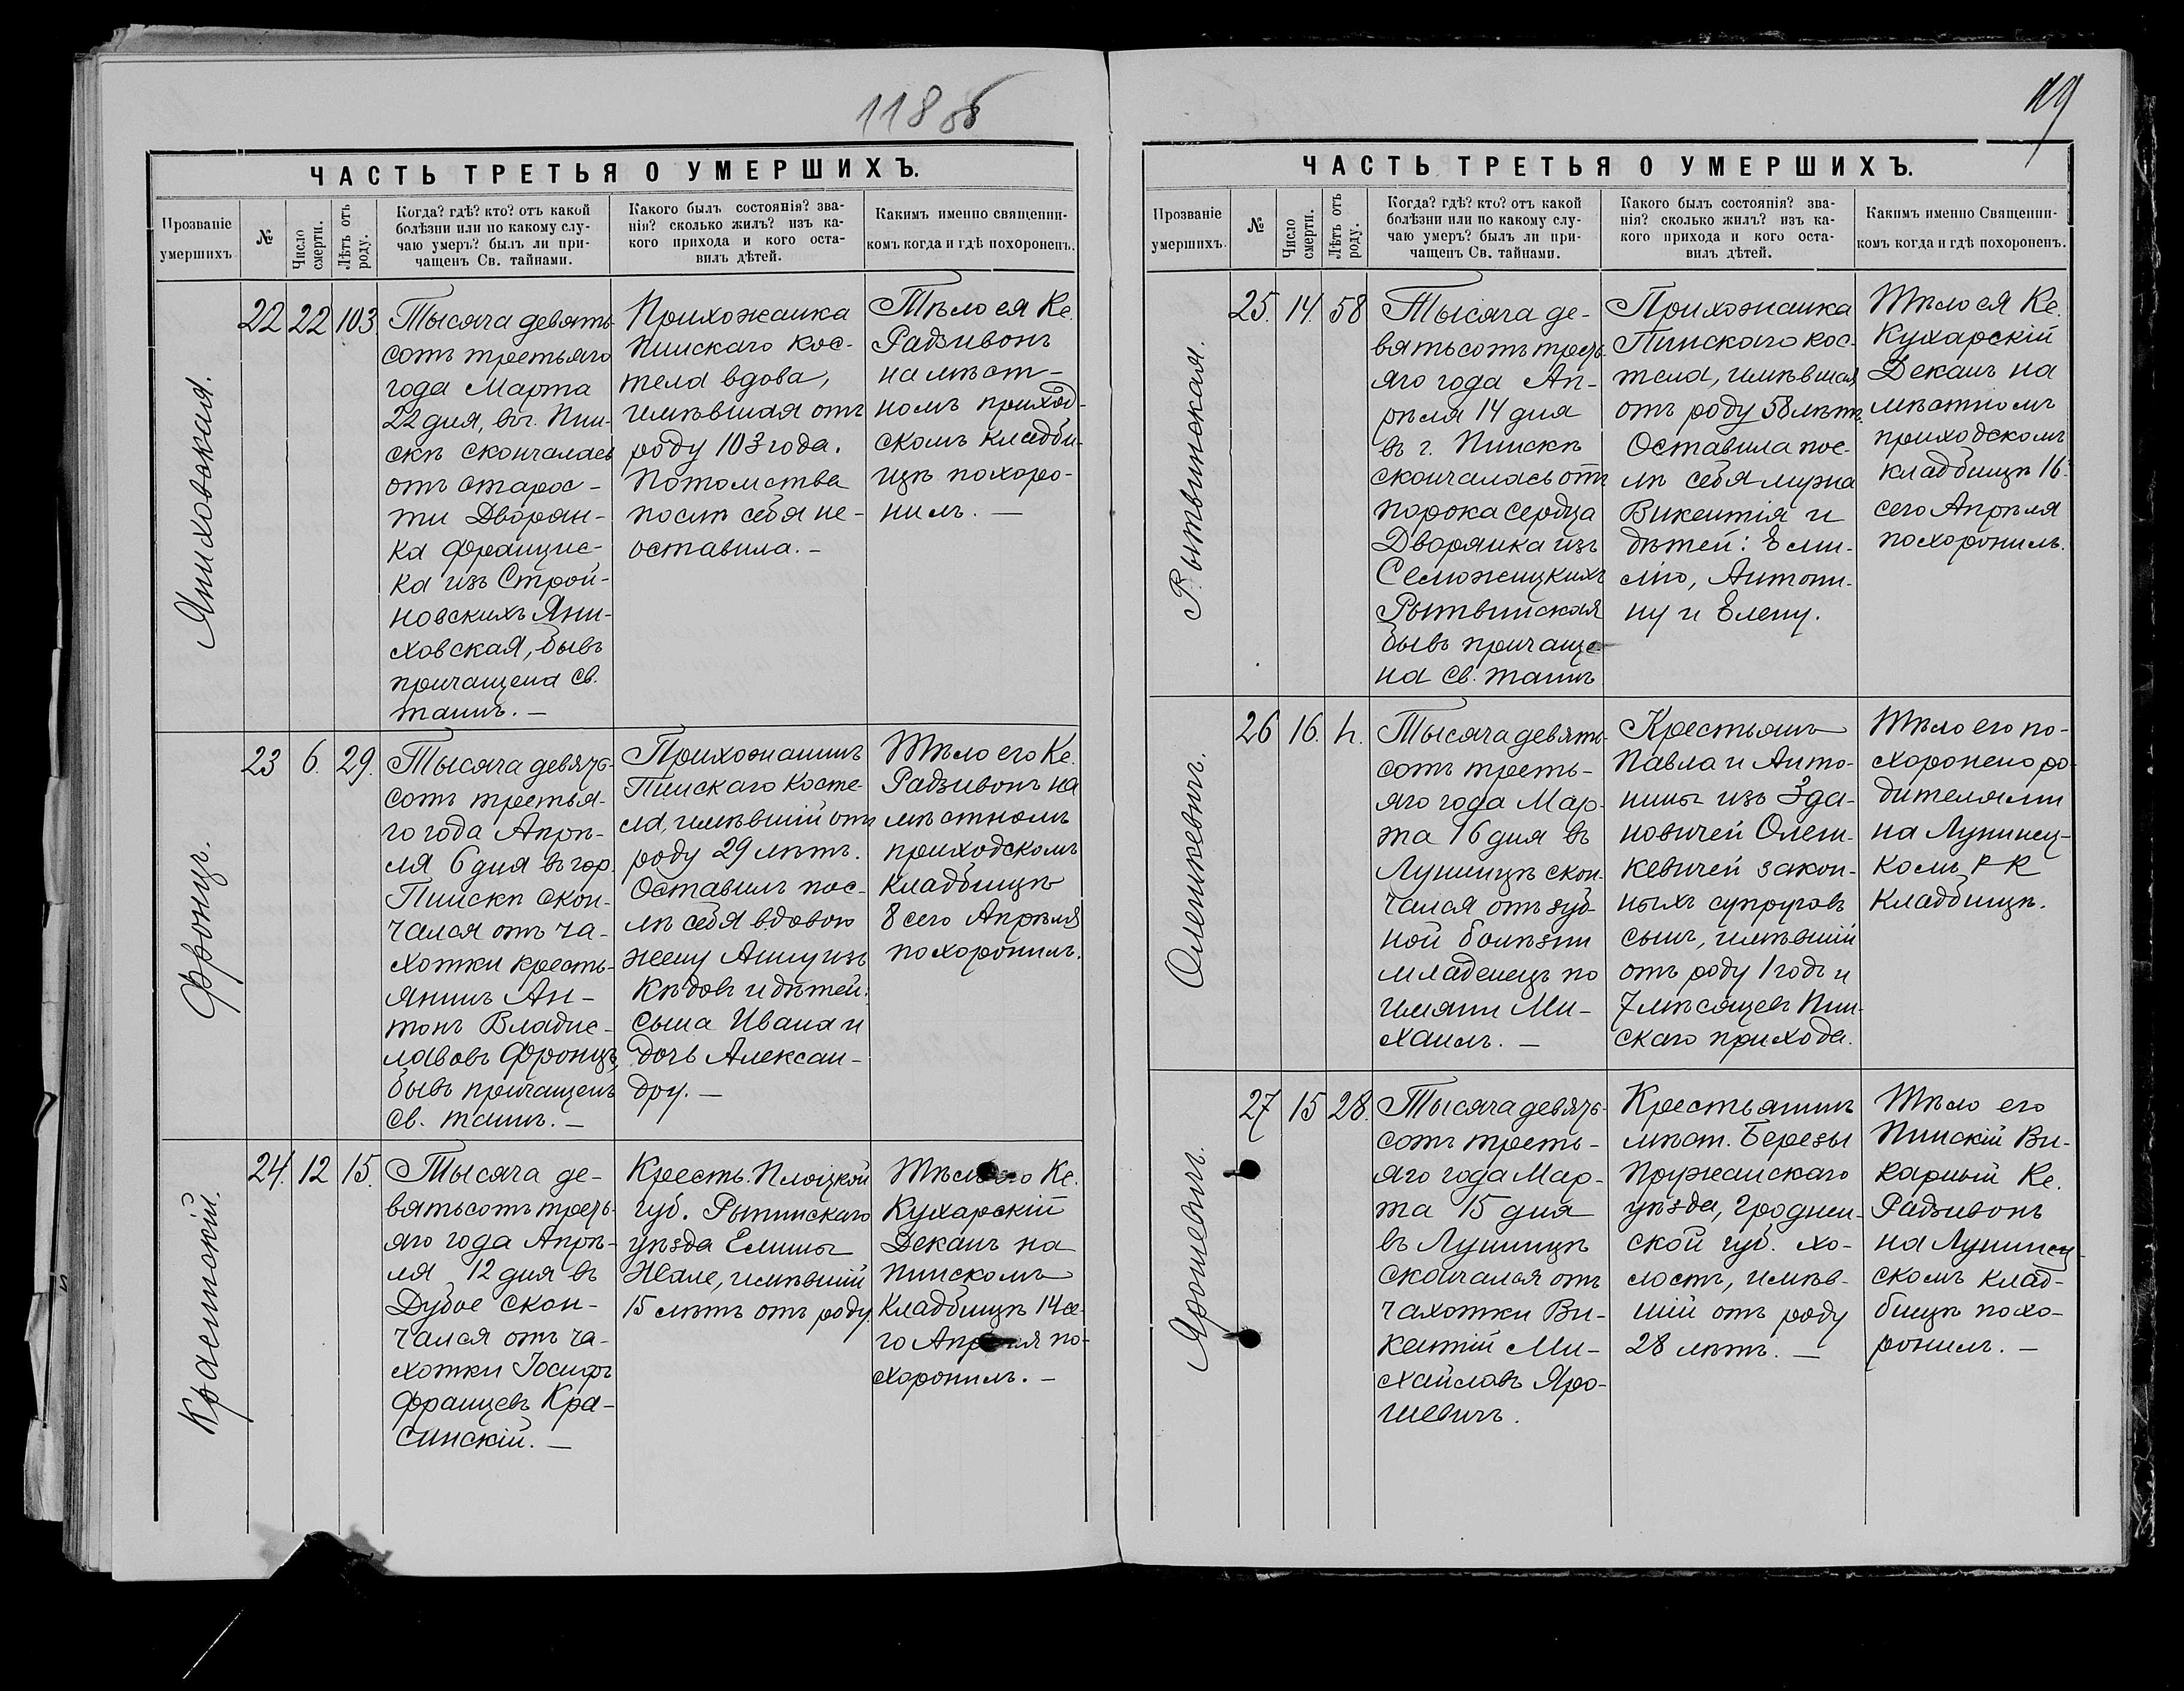 118 об
ЧАСТЬ ТРЕТЬЯ О УМЕРШИХЪ.
Прозваніе
умершихъ
№
Число
смерти.
Лѣтъ отъ
роду.
Когда? гдѣ? кто? отъ какой
болѣзни или по какому слу-
чаю умеръ? былъ ли при-
чащенъ Св. тайнами.
Какого былъ состоянія? зва-
нія? сколько жилъ? изъ ка-
кого прихода и кого оста-
вилъ дѣтей.
Какимъ именно священни-
комъ когда и гдѣ похороненъ.
Яниховская.
22
22
103
Тысяча девять-
сотъ третьяго
года Марта
22 дня, въ г. Пин-
скѣ скончалась
отъ старос-
ти Дворян-
ка Францис-
ка изъ Строй-
новскихъ Яни-
ховская, бывъ
причащена Св.
таинъ. —
Прихожанка
Пинскаго кос-
тела вдова,
имѣвшая отъ
роду 103 года.
Потомства
послѣ себя не-
оставила. –
Тѣло ея Кс.
Радзивонъ
на мѣст-
номъ приход-
скомъ кладби-
щѣ похоро-
нилъ. —
Фронцъ.
23
6.
29.
Тысяча девять-
сотъ третья-
го года Апрѣ-
ля 6 дня въ гор.
Пинскѣ скон-
чался отъ ча-
хотки кресть-
янинъ Ан-
тонъ Владис-
лавовъ Фронцъ,
бывъ причащенъ
Св. таинъ. —
Прихожанинъ
Пинскаго Косте-
ла, имѣвшій отъ
роду 29 лѣтъ.
Оставилъ пос-
лѣ себя вдовою
жену Анну изъ
Кѣдовъ и дѣтей:
сына Ивана и
дочь Алексан-
дру. —
Тѣло его Кс.
Радзивонъ на
мѣстномъ
приходскомъ
кладбищѣ
8 сего Апрѣля
похоронилъ.
Красинскій.
24.
12
15.
Тысяча де-
вятьсотъ треть-
яго года Апрѣ-
ля 12 дня въ
Дубое скон-
чался отъ ча-
хотки Іосифъ
Францевъ Кра-
синскій. —
Кресть. Плоцкой
губ. Рыпинскаго
уѣзда Гмины
15 лѣтъ отъ роду.
имѣвшій
Тѣло его Кс.
Кухарскій
Деканъ на
Пинскомъ
кладбищѣ 14 се-
го Апрѣля по-
хоронилъ. –
119
ЧАСТЬ ТРЕТЬЯ О УМЕРШИХЪ.
Прозваніе
умершихъ.
№
Число
смерти.
Лѣтъ отъ
роду.
Когда? гдѣ? кто? отъ какой
болѣзни или по какому слу-
чаю умеръ? былъ ли при-
чащенъ Св. тайнами.
Какого былъ состоянія? зва-
нія? сколько жилъ? изъ ка-
кого прихода и кого оста-
вилъ дѣтей.
Какимъ именно Священни-
комъ когда и гдѣ похороненъ.
Рытвинская.
25.
14.
58
Тысяча де-
вятьсотъ треть-
яго года Ап-
рѣля 14 дня
въ г. Пинскѣ
скончалась отъ
порока сердца
Дворянка изъ
Семюжицкихъ
Рытвинская
бывъ причаще-
на Св. таинъ
Прихожанка
Пинскаго кос-
тела, имѣвшая
отъ роду 58 лѣтъ.
Оставила пос-
лѣ себя мужа
Викентія и
дѣтей: Еми-
лію, Антони-
ну и Елену.
Тѣло ея Кс.
Кухарскій
Деканъ на
мѣстномъ
приходскомъ
кладбищѣ 16
сего Апрѣля
похоронилъ.
Олешкевичъ.
26
16.
Тысяча девять-
сотъ треть-
яго года Мар-
та 16 дня въ
Лунинцѣ скон-
чался отъ зуб-
ной болѣзни
младенецъ по
имяни Ми-
хаилъ. —
Крестьянъ
Павла и Анто-
нины изъ Зда-
новичей Олеш-
кевичей закон-
ныхъ супруговъ
сынъ, имѣвшій
отъ роду 1 годъ и
7 мѣсяцевъ Пин-
скаго прихода.
Тѣло его по-
хоронено ро-
дителями
на Лунинец-
комъ Р К
Кладбищѣ.
Ярошевичъ.
27
15
28.
Тысяча девять-
сотъ треть-
яго года Мар-
та 15 дня
въ Лунинцѣ
скончался отъ
чахотки Ви-
кентій Ми-
хайловъ Яро-
шевичъ.
Крестьянинъ
мѣст. Березы
Пружанскаго
уѣзда, Гроднен-
ской губ. хо-
лостъ, имѣв-
шій отъ роду
28 лѣтъ. —
Тѣло его
Пинскій Ви-
карный Кс.
Радзивонъ
на Лунинец-
скомъ клад-
бищѣ похо-
ронилъ. —